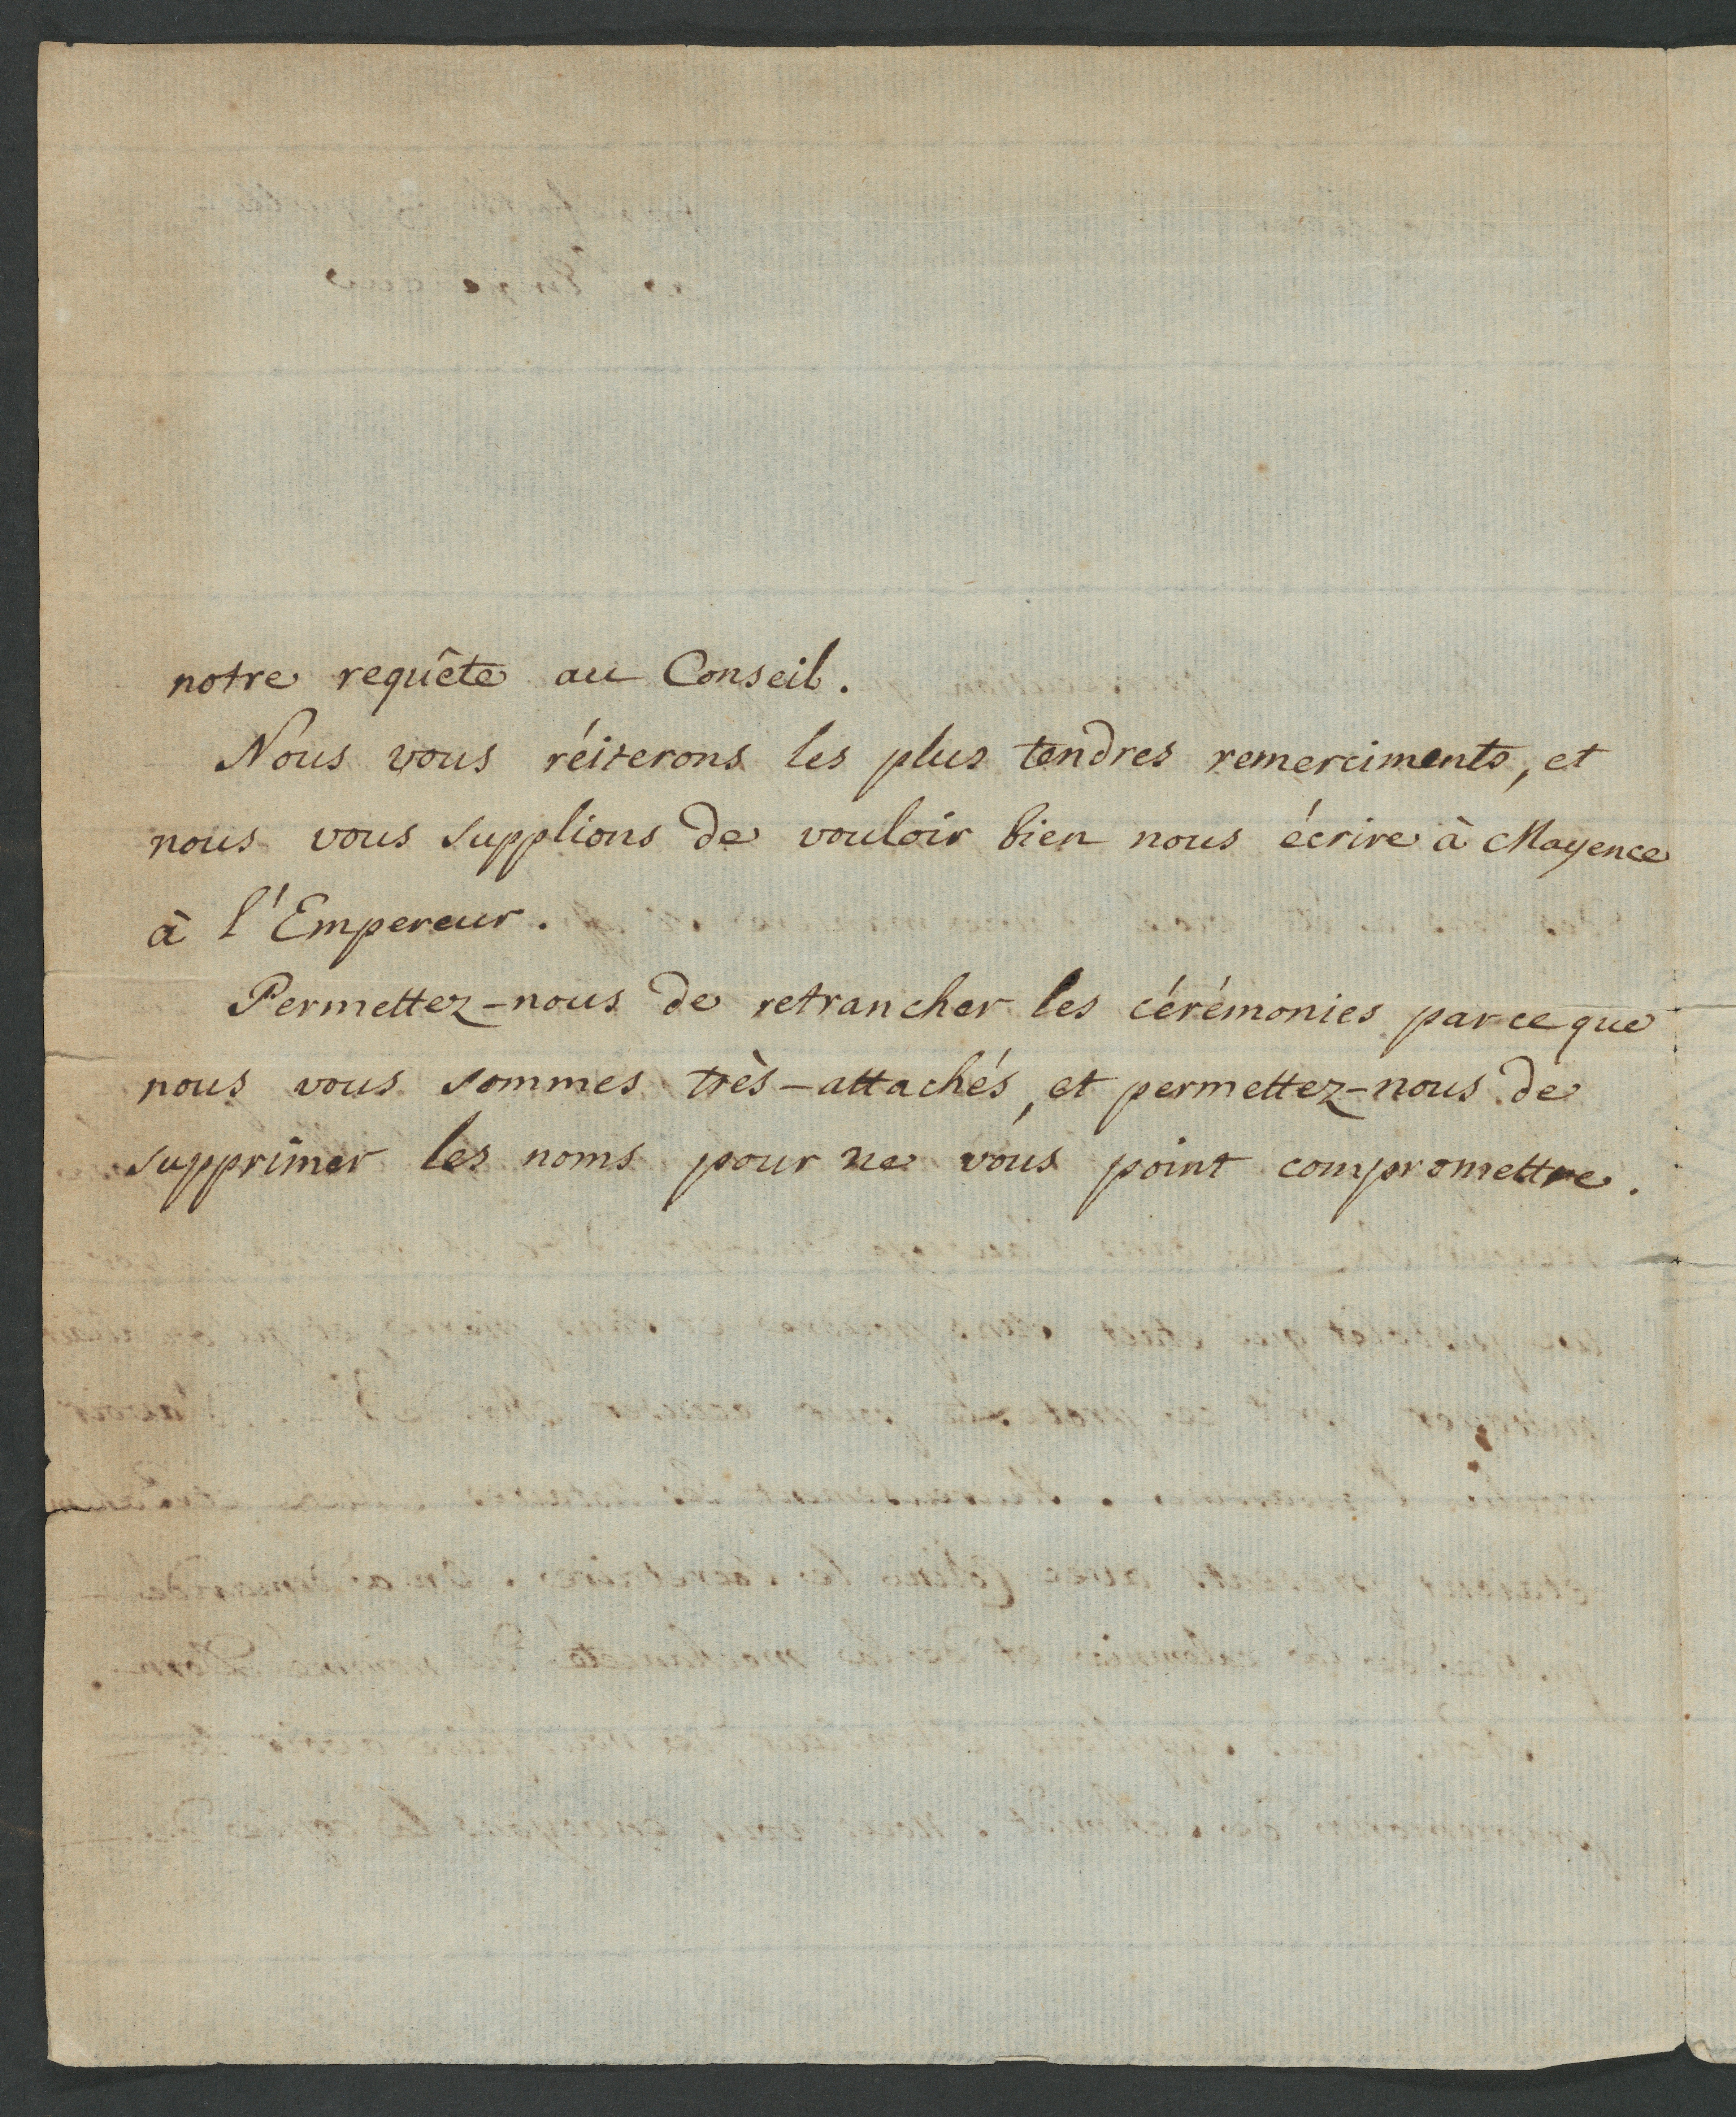 notre requête au Conseil.
Nous vous réiterons les plus tendres remerciments, et
nous vous supplions de vouloir bien nous écrire à Mayence
à l'Empereur.
Permettez-nous de retrancher les cérémonies parceque
nous vous sommes très-attachés, et permettez-nous de
supprimer les noms pour ne vous point compromettre.